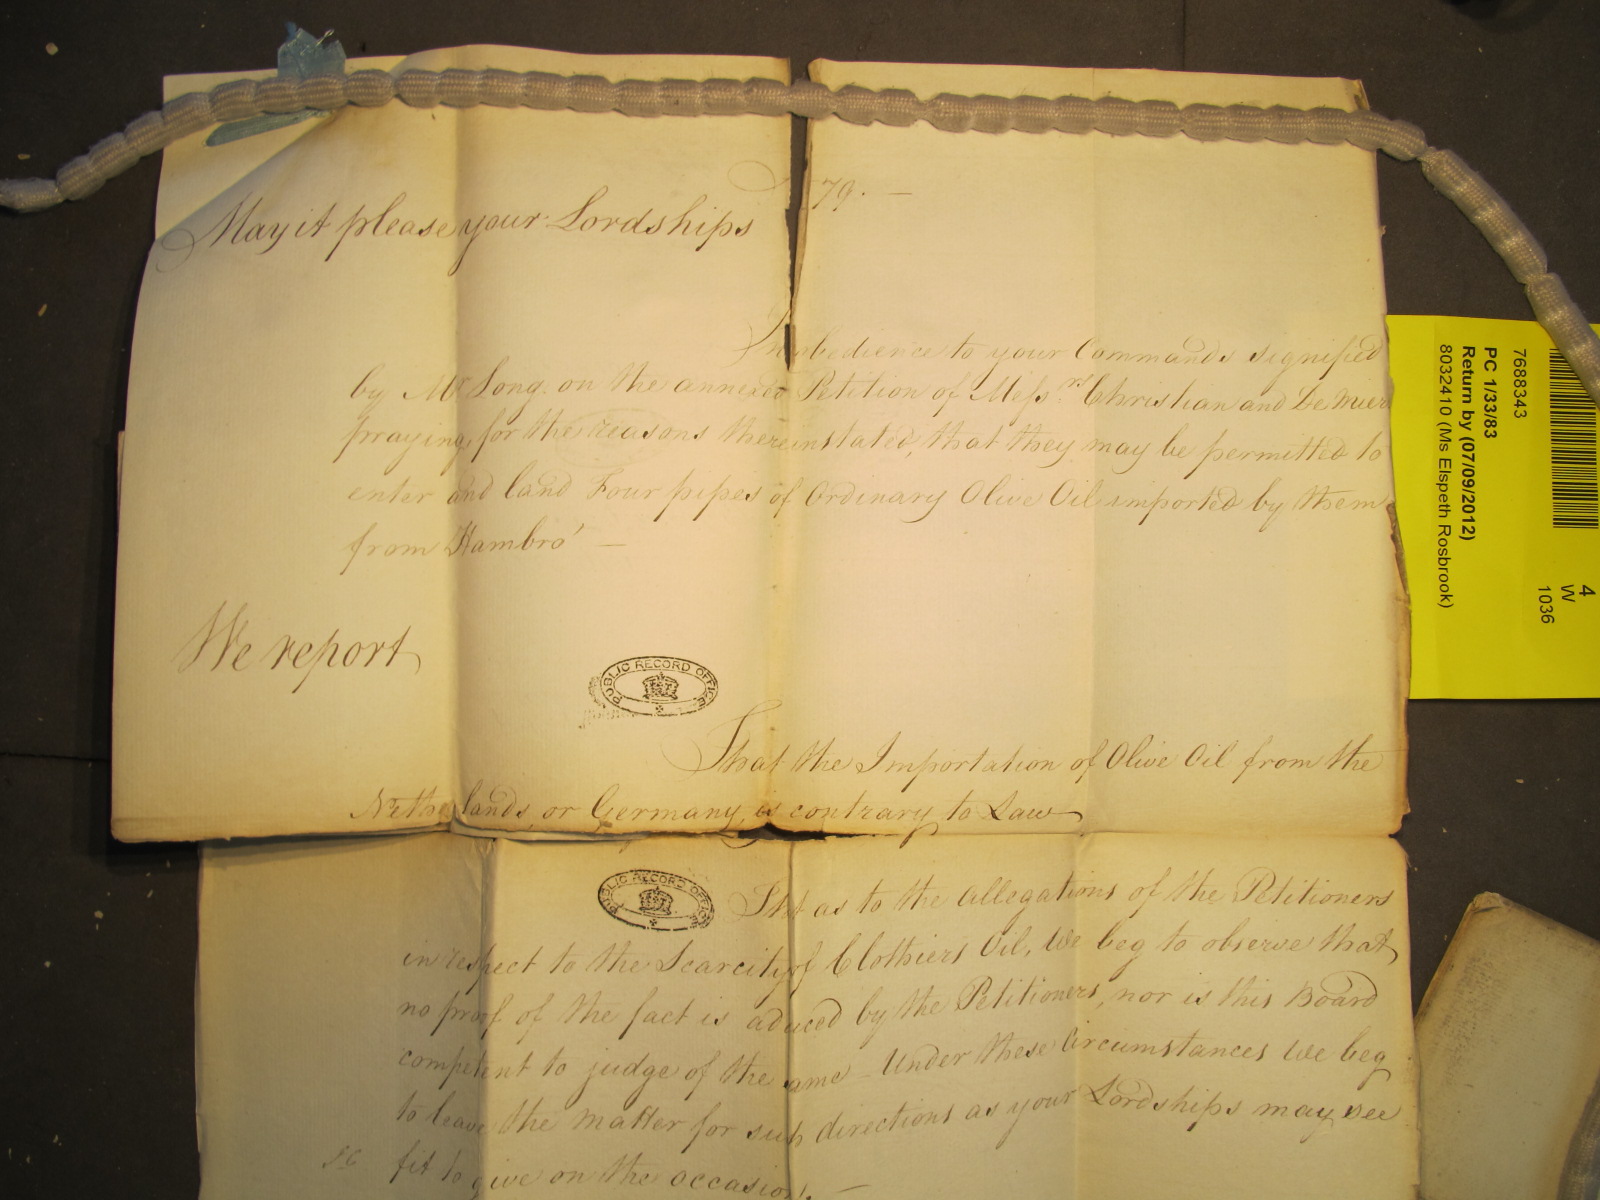 79. —
May it please your Lordships
In obedience to your Commands signified
by Mr Long. on the annexed Petition of Messrs Christian and De Mierr
praying, for the reasons therein stated, that they may be permitted to
enter and land Four pipes of Ordinary Olive Oil imported by them
from Hambro' —
We report
PUBLIC RECORD OFFICE
That the Importation of Olive Oil from the
Netherlands, or Germany, is contrary to Law
PUBLIC RECORD OFFICE
That as to the allegations of the Petitioners
in respect to the Scarcity of Clothiers Oil, We beg to observe that
no proof of the fact is aduced by the Petitioners, nor is this Board
competent to judge of the same — Under these Circumstances We beg
to leave the matter for such directions as your Lordships may see
fit to give on the occasion. —
7688343
PC 1/33/83
Return by (07/09/2012)
8032410 (Ms Elspeth Rosbrook)
4
W
1036